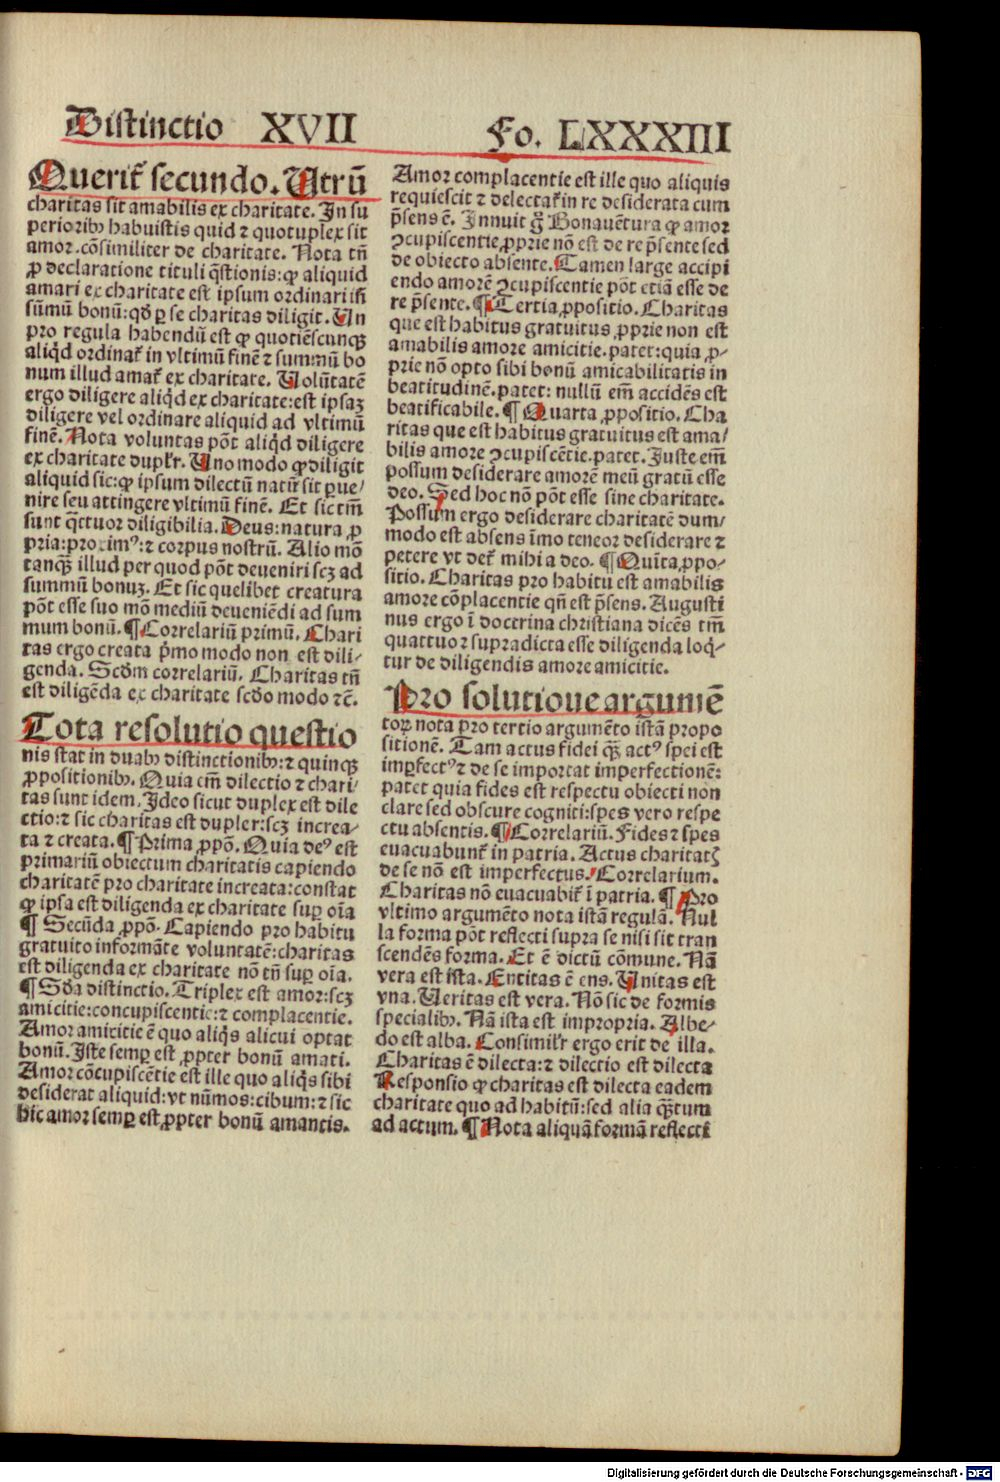 Distinctio XVII Fo. LXXXIII
Querit᷑ secundo. Utrū
charitas sit amabilis ex charitate. In su
periorib᷒ habuistis quid ⁊ quotuplex sit
amor. cōsimiliter de charitate. Nota tn̄
ꝓ declaratione tituli q̄stionis: ꝙ aliquid
amari ex charitate est ipsum ordinari in
sūmū bonū: qd̄ ꝑ se charitas diligit. Un
pro regula habendū est ꝙ quotiēscunqꝫ
aliqd̄ ordinat᷑ in vltimū finē ⁊ summū bo
num illud amat᷑ ex charitate. Uolūtatē
ergo diligere aliqd̄ ex charitate: est ipsaꝫ
diligere vel ordinare aliquid ad vltimū
finē. Nota voluntas pōt aliqd̄ diligere
ex charitate dupl͛r. Uno modo ꝙ diligit
aliquid sic: ꝙ ipsum dilectū natū sit ꝑue/
nire seu attingere vltimū finē. Et sic tm̄
sunt q̄ttuor diligibilia. Deus: natura ꝓ
pria: proximꝰ: ⁊ corpus nostrū. Alio mō
tanqꝫ illud per quod pōt deueniri scꝫ ad
summū bonuꝫ. Et sic quelibet creatura
pōt esse suo mō mediū deueniēdi ad sum
mum bonū. ¶ Correlariū primū. Chari
tas ergo creata p̄mo modo non est dili/
genda. Scd̄m correlariū. Charitas tn̄
est diligēda ex charitate scd̄o modo ⁊c̄.
Tota resolutio questio
nis stat in duab᷒ distinctionib᷒: ⁊ quinqꝫ
ꝓpositionib᷒. Quia em̄ dilectio ⁊ chari/
tas sunt idem. Ideo sicut duplex est dile
ctio: ⁊ sic charitas est dupler: scꝫ increa/
ta ⁊ creata. ¶ Prima ꝓpō. Quia deꝰ est
primariū obiectum charitatis capiendo
charitatē pro charitate increata: constat
ꝙ ipsa est diligenda ex charitate suꝑ oīa
¶ Secūda ꝓpō. Capiendo pro habitu
gratuito informāte voluntatē: charitas
est diligenda ex charitate nō tn̄ suꝑ oīa.
¶ Sd̄a distinctio. Triplex est amor: scꝫ
amicitie: concupiscentie: ⁊ complacentie.
Amor amicitie ē quo aliq̄s alicui optat
bonū. Iste semꝑ est ꝓpter bonū amati.
Amor cōcupiscētie est ille quo aliq̄s sibi
desiderat aliquid: vt nūmos: cibum: ⁊ sic
hic amor semꝑ est ꝓpter bonū amantis.
Amor complacentie est ille quo aliquis
requiescit ⁊ delectat᷑ in re desiderata cum
p̄sens ē. Innuit gͦ Bonauētura ꝙ amor
ↄcupiscentie ꝓprie nō est de re p̄sente sed
de obiecto absente. Tamen large accipi
endo amorē ↄcupiscentie pōt etiā esse de
re p̄sente. ¶ Tertia ꝓpositio. Charitas
que est habitus gratuitus ꝓprie non est
amabilis amore amicitie. patet: quia ꝓ/
prie nō opto sibi bonū amicabilitatis in
beatitudinē. patet: nullū em̄ accidēs est
beatificabile. ¶ Quarta ꝓpositio. Cha
ritas que est habitus gratuitus est ama/
bilis amore ↄcupiscētie. patet. Iuste em̄
possum desiderare amorē meū gratū esse
deo. Sed hoc nō pōt esse sine charitate.
Possum ergo desiderare charitatē dum/
modo est absens īmo teneor desiderare ⁊
petere vt det᷑ mihi a deo. ¶ Quīta ꝓpo/
sitio. Charitas pro habitu est amabilis
amore cōplacentie qn̄ est p̄sens. Augusti
nus ergo ī doctrina christiana dicēs tm̄
quattuor supradicta esse diligenda loq̄/
tur de diligendis amore amicitie.
Pro solutioue argumē
toꝝ nota pro tertio argumēto istā propo
sitionē. Tam actus fidei qꝫ actꝰ spei est
imꝑfectꝰ ⁊ de se importat imperfectionē:
patet quia fides est respectu obiecti non
clare sed obscure cogniti: spes vero respe
ctu absentis. ¶ Correlariū. Fides ⁊ spes
euacuabunt᷑ in patria. Actus charitatꝭ
de se nō est imperfectus. Correlarium.
Charitas nō euacuabit᷑ ī patria. ¶ Pro
vltimo argumēto nota istā regulā. Nul
la forma pōt reflecti supra se nisi sit tran
scendēs forma. Et ē dictū cōmune. Nā
vera est ista. Entitas ē ens. Unitas est
vna. Ueritas est vera. Nō sic de formis
specialib᷒. Nā ista est impropria. Albe/
do est alba. Consimil͛r ergo erit de illa.
Charitas ē dilecta: ⁊ dilectio est dilecta
Responsio ꝙ charitas est dilecta eadem
charitate quo ad habitū: sed alia q̄ꝫtum
ad actum. ¶ Nota aliquā formā reflecti
Digitalisierung gefördert durch die Deutsche Forschungsgemeinschaft - DFG